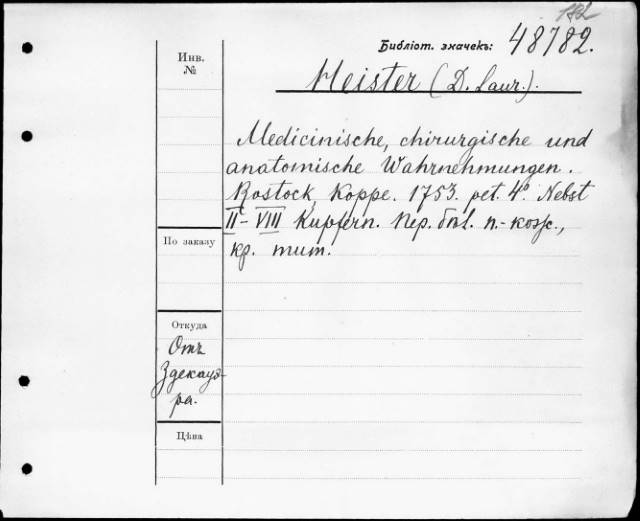 182
Библіот. значекъ: 48782.
Инв.
№
Heister (D. Laur.).
Medicinische, chirurgische und
anatomische Wahrnehmungen.
Rostock, Koppe. 1753. pet. 4°. Nebst
II–VIII Kupfern. Пер. бѣл. п.-кож.,
кр. тит.
По заказу
Откуда
Отъ
Здекауе-
ра.
Цѣна